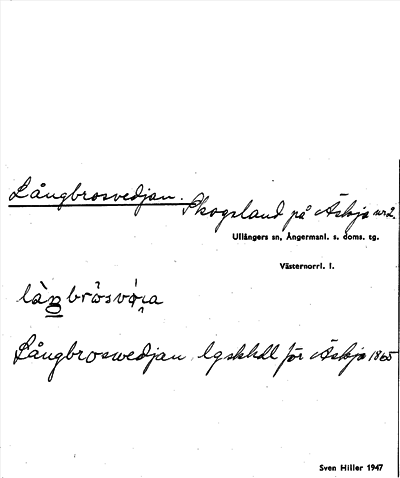 Långbrosvedjan. Skogsland på Äskja nr 2.
Ullångers sn, Ångermanl. s. doms. tg.
Västernorrl. l.
Långbroswedjan, lgskhdl för Äskja 1865
Sven Hiller 1947